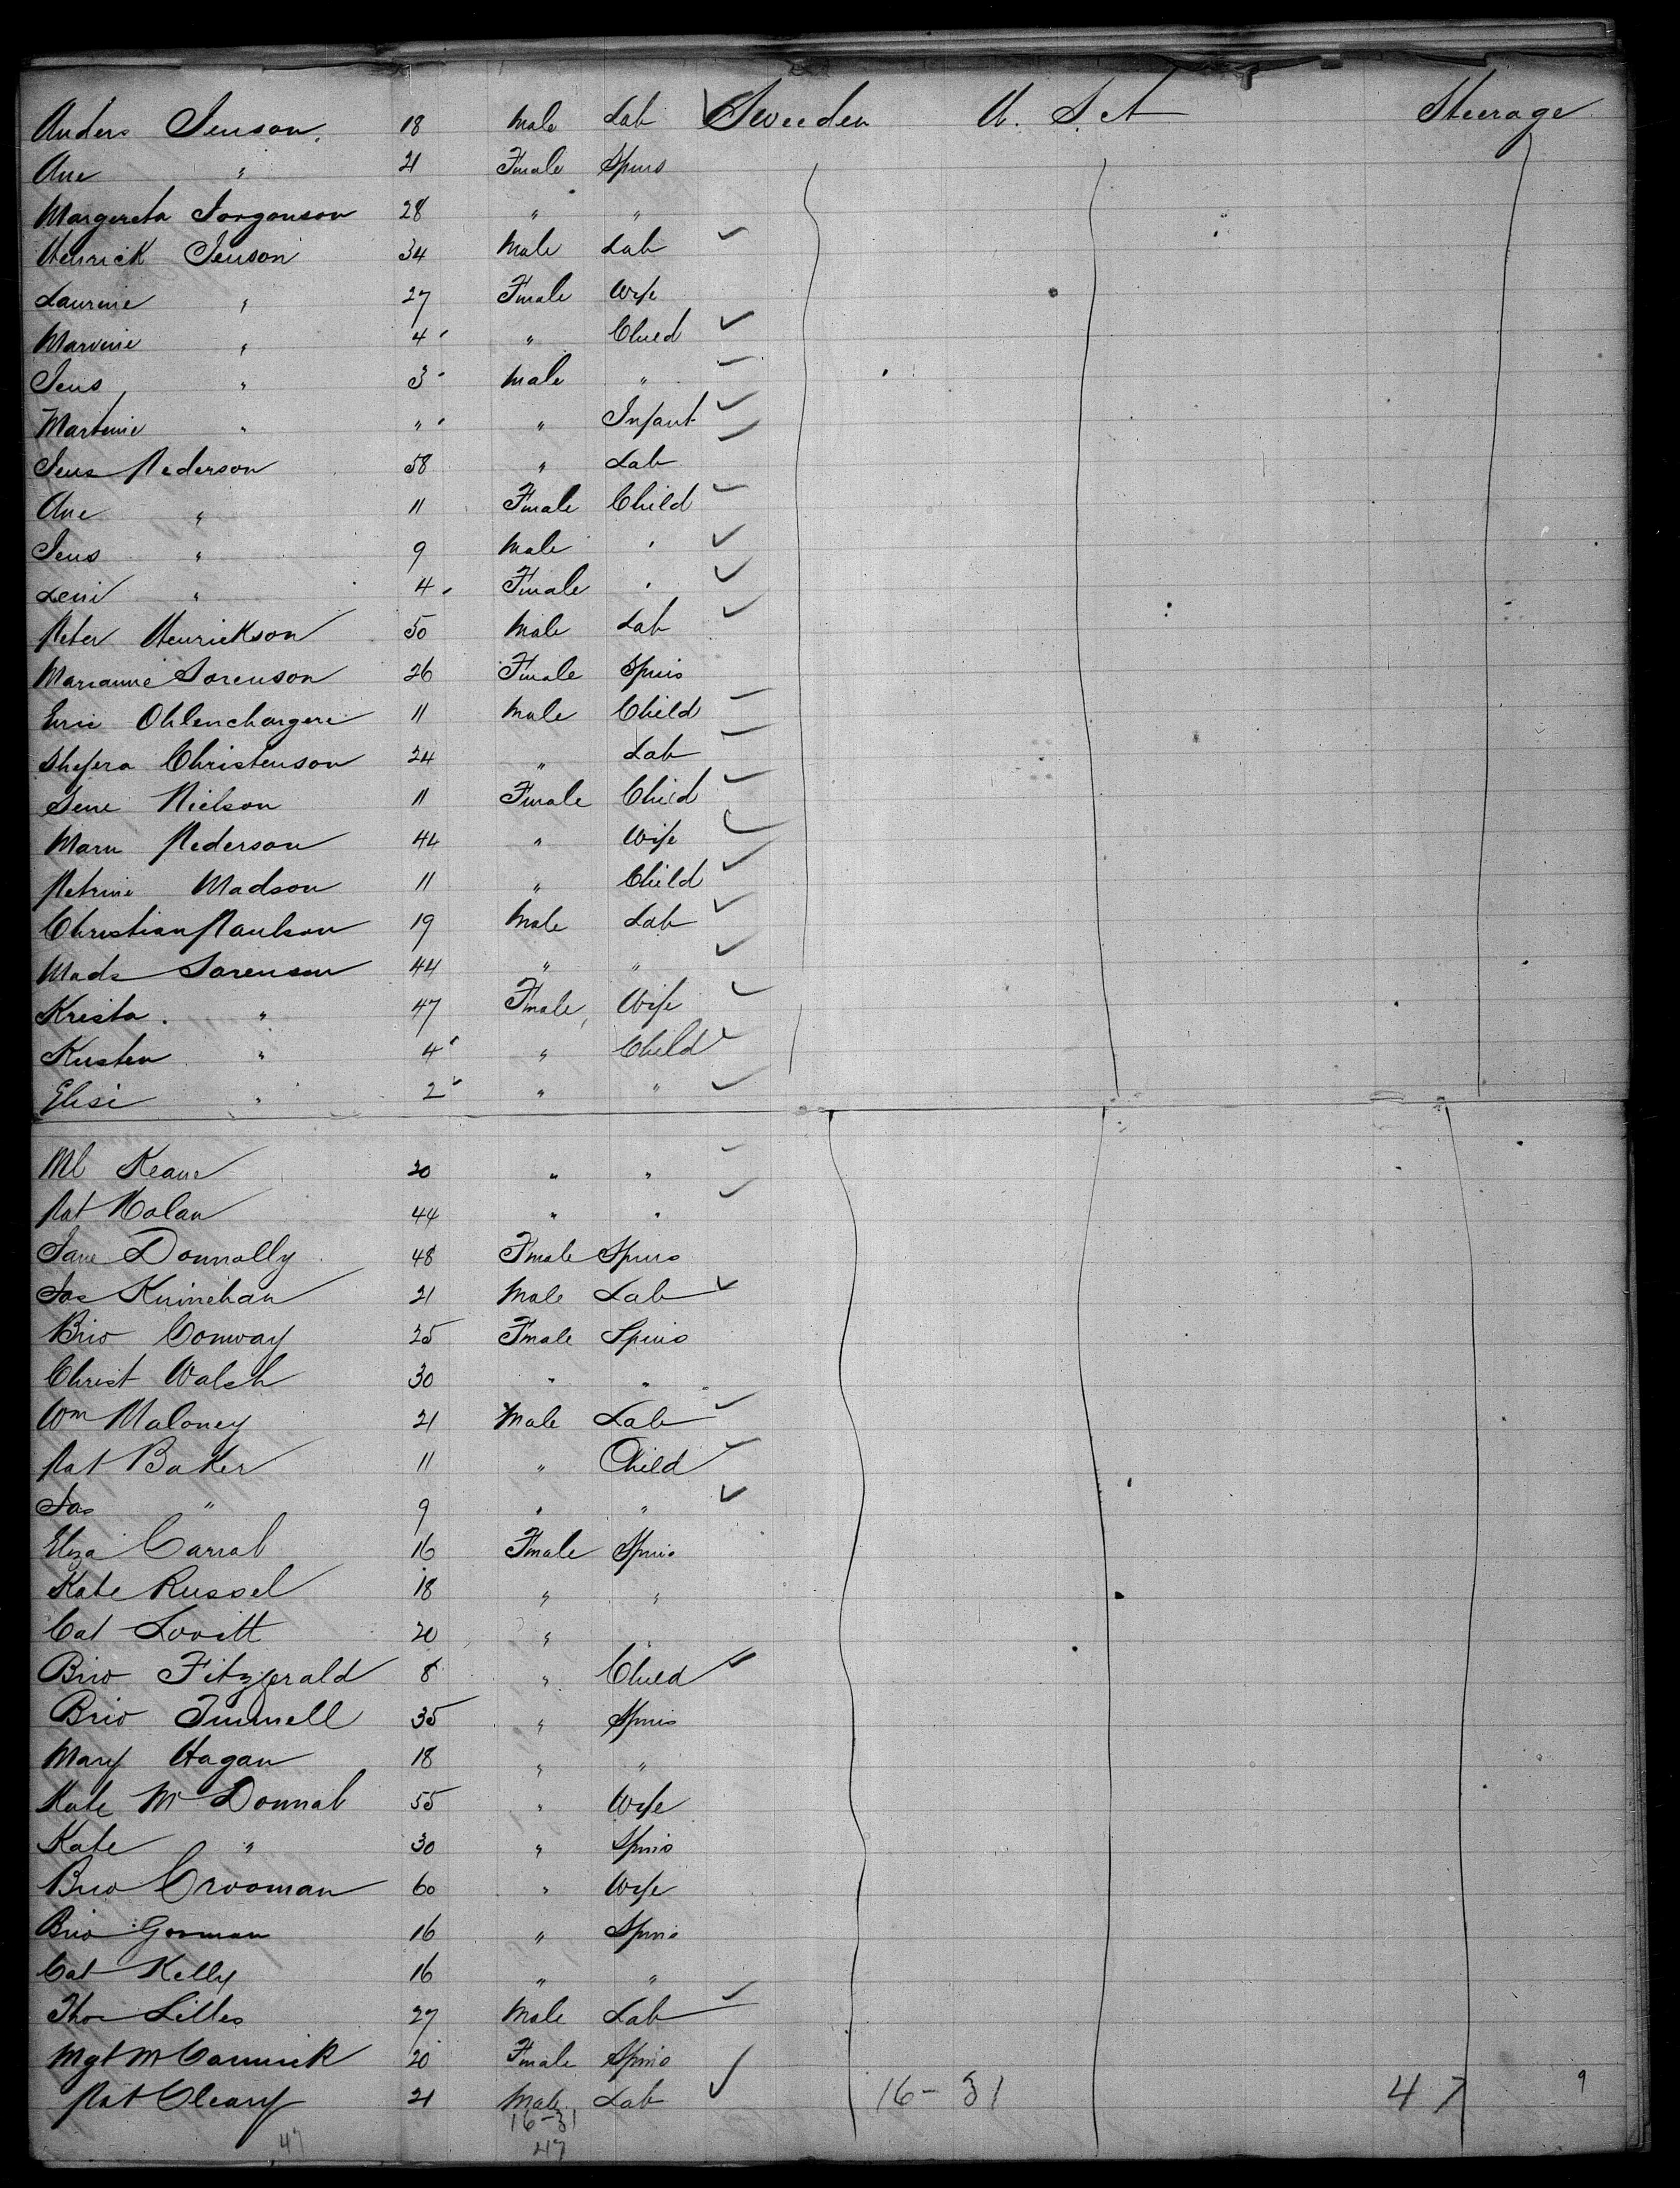 Anders Jenson 18 Male Lab Sweeden U. S. A Steerage
Ane " 21 Fmale Spins
Margereta Jorgonson 28 " "
Henrick Jenson 34 Male Lab
Laurine " 27 Fmale Wife
Marvine " 4 " Child
Jens " 3 Male "
Martine " " " Infant
Jens Pederson 58 " Lab
Ane " 11 Fmale Child
Jens " 9 Male "
Leni " 4 Fmale "
Peter Henrickson 50 Male Lab
Marianne Sorenson 26 Fmale Spins
11 Male Child
Christenson 24 " Lab
Sene Nielson 11 Fmale Child
Marn Pederson 44 " Wife
Petrine Madson 11 " Child
Christian Paulson 19 Male Lab
Mads Sorenson 44 " "
Krista " 47 Fmale Wife
Kirsten " 4 " Child
Elisi " 2 " "
Ml Keane 20 " "
Pat Nolan 44 " "
Jane Donnolly 48 Fmale Spins
Jas Kninehan 21 Male Lab
Brid Conway 25 Fmale Spins
Christ Walsh 30 " "
Wm Maloney 21 Male Lab
Pat Baker 11 " Child
Jas " 9 " "
Eliza Carral 16 Fmale Spins
Kate Russel 18 " "
Cat Lovitt 20 " "
Brid Fitzgerald 8 " Child
Brid 35 " Spins
Mary Hagan 18 " "
Kate Mc Donnal 55 " Wife
Kate " 30 " Spins
Brid Crooman 60 " Wife
Brid Gorman 16 " Spins
Cat Kelly 16 " "
Thos Lilles 27 Male Lab
Mgt McCormick 20 Fmale Spins
Pat Cleary 21 Male Lab 16-31 47 9
16-31
47 47